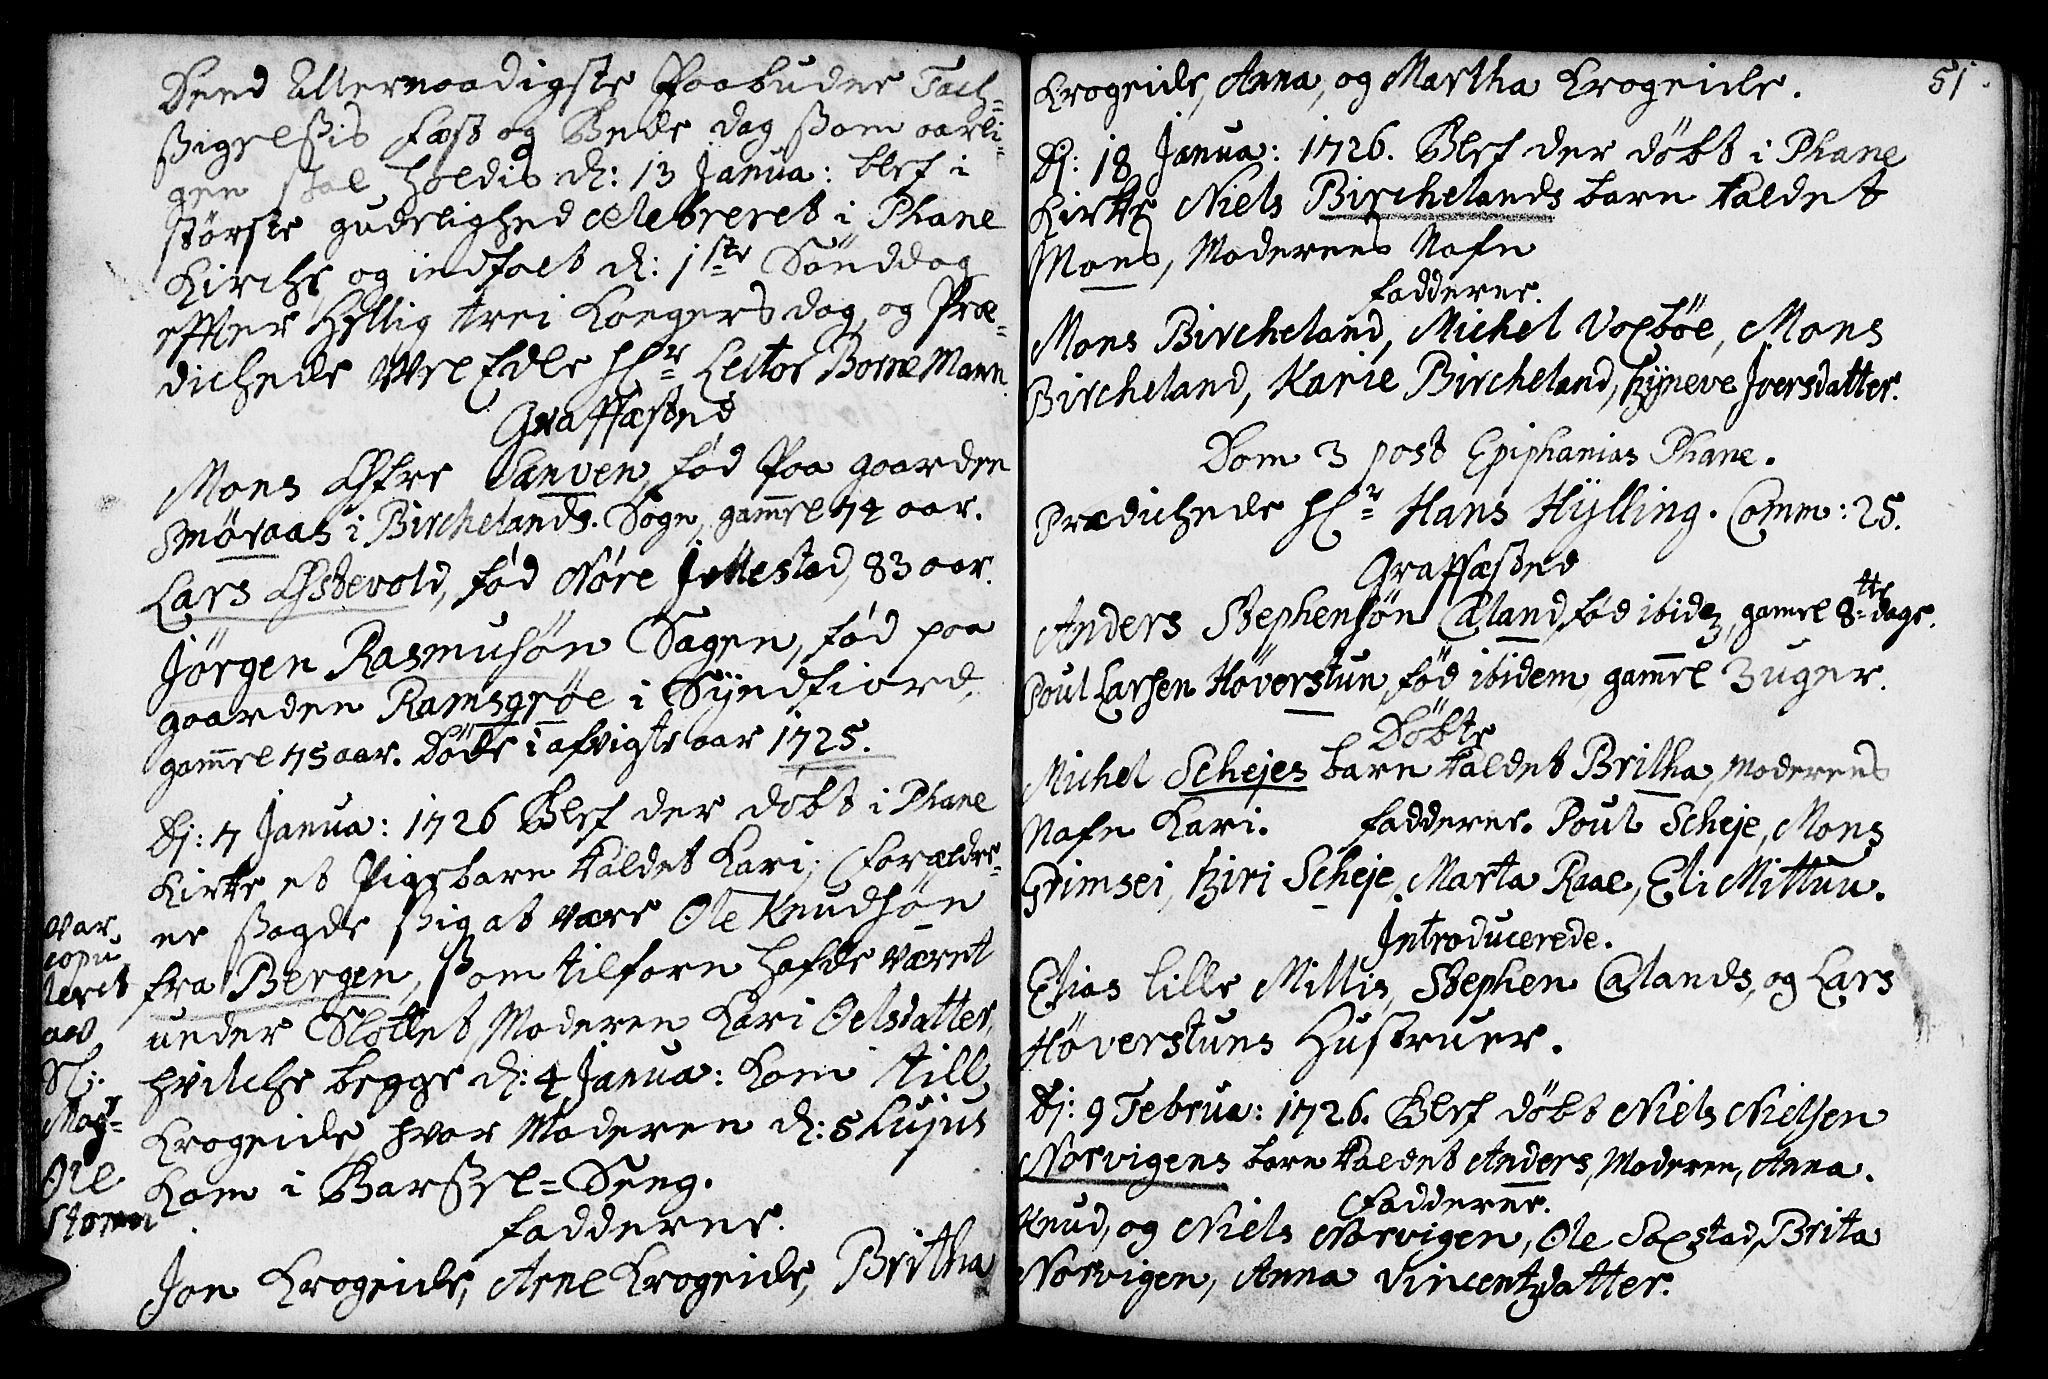 Deend Allernaadigste Paabudne Tach=
sigelsis fæst og Bede dag som aarli=
gen skal holdis d: 13 Janua: blef i
største gudelighed celebreret i Phane
Kirche og indfalt d: 1ste Sönddag
effter Hellig trei Kongers dag, og Præ=
dichede WelEdle Hr Lector BorneMann
Graffæsted
Mons Øfre Sanven, fød Paa gaarden
Smöraas i Birchelands Sogn, gamel 74 aar.
Lars Østevold, fød Nöre Jettestad, 83 aar.
Jørgen Rasmusøn Sagen, fød paa
gaarden Ramsgrøe i Syndfiord,
gamel 75 aar. Döde i afvigte aar 1725.
Dj: 7 Janua: 1726 Blef der döbt i Phane
Kirke et Pigebarn kaldet Kari, Forældre=
ne sagde sig at være Ole Knudsøn
fra Bergen, som tilforn hafde været
under Slottet, Moderen Kari Oelsdatter,
hvilche begge d: 4 Janua: kom till
Krogeide, hvor Moderen d: 5 hujus
kom i Barsel=Seng.
Fadderne.
Jon Krogeide, Arne Krogeide, Britha
var
copu
leret
av
Sl:
Magr=
Ole
Storm
51
Krogeide, Anna, og Martha Krogeide.
Dj: 18 Janua: 1726. Blef der döbt i Phane
Kirke Niels Birchelands barn kaldet
Mons, Moderens Nafn
Fadderne.
Mons Bircheland, Michel Voxböe, Mons
Bircheland, Karie Bircheland, Zyneve Joersdatter.
Dom 3 post Epiphanias Phane.
Prædichede Hr Hans Hylling. Comm: 25.
Graffæsted
Anders Stephensön Øland, fød ibidem, gamel 8tte dage.
Poul Larsen Höverstun, fød ibidem, gamel 3 uger.
Döbte
Michel Schejes barn kaldet Britha, Moderens
Nafn Kari. Fadderne. Poul Scheje, Mons
Grimsei, Ziri Scheje, Marta Raae, Eli Mittun.
Introducerede.
Elias lille Millis, Stephen Ølands, og Lars
Höverstuns Hustruer.
Dj: 9 Februa: 1726. Blef döbt Niels Nielsen
Norvigens barn kaldet Anders, Moderen, Anna.
Fadderne.
Knud, og Niels Norvigen, Ole Saxstad, Brita
Norvigen, Anna Vincentzdatter.